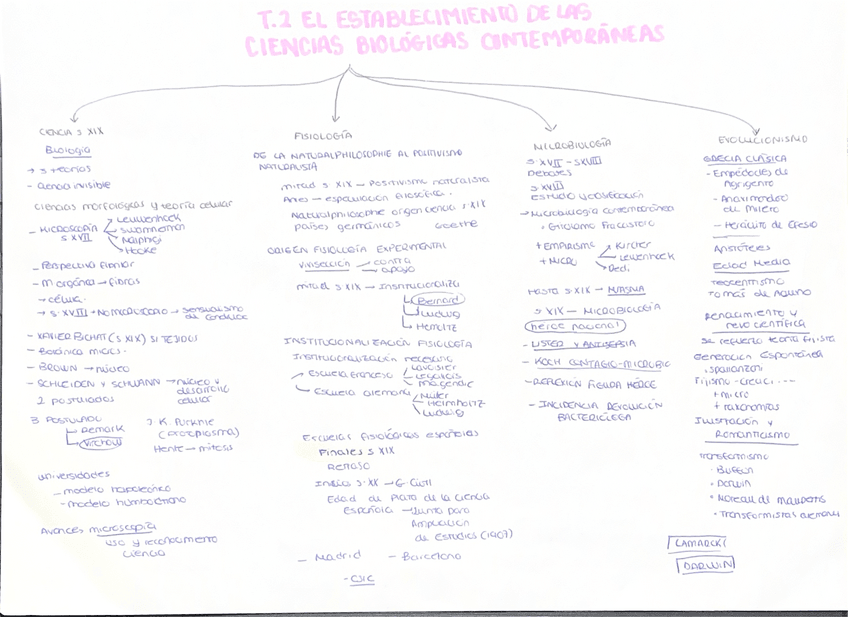 T.2 EL ESTABLECIMIENTO DE LAS
CIENCIAS BIOLÓGICAS CONTEMPORÁNEAS
CIENCIA S XIX
Biología
→ 3 teorías
- ciencia invisible
Ciencias morfológicas y teoría celular
- MICROSCOPÍA
S XVII
Leuwenhoek
Swammerman
Malphigi
Hooke
- Perspectiva fibrilar
- M orgánica → fibras
→ célula
→ S. XVIII + NO MICROSCOPIO → sensualismo
de Condillac
- XAVIER BICHAT (S XIX) SI TEJIDOS
- Botánica micros.
- BROWN → núcleo
- SCHLEIDEN Y SCHWANN → núcleo y
desarrollo
celular
2 postulados
3 POSTULADO
Remark
Virchow
J. K. Purkinje
(protoplasma)
Henle → mitosis
universidades
- modelo napoleónico
- modelo humboldtiano
Avances microscopía
uso y reconocimiento
ciencia
FISIOLOGÍA
DE LA NATURALPHILOSOPHIE AL POSITIVISMO
NATURALISTA
mitad S XIX - Positivismo naturalista
Antes - especulación filosófica.
Naturalphilosophie origen ciencia S XIX
países germánicos Goethe
ORIGEN FISIOLOGÍA EXPERIMENTAL
VIVISECCIÓN
contra
apoyo
mitad S XIX - Institucionaliza
Bernard
Ludwig
Hemoltz
INSTITUCIONALIZACIÓN FISIOLOGÍA
Institucionalización necesario
Escuela francesa
Lavoisier
Legallois
Magendie
Escuela alemana
Müller
Helmholtz
Ludwig
Escuelas fisiológicas españolas
Finales S XIX
Retraso
Inicios S. XX → G. Civil
Edad de Plata de la ciencia
Española → Junta para
Ampliación
de Estudios (1907)
- Madrid - Barcelona
- CSIC
MICROBIOLOGÍA
S. XVII - S XVIII
Debates
S XVIII
ESTUDIO Y OBSERVACIÓN
→ Microbiología contemporánea
Girolamo Fracastoro
+ EMPIRISMO
+ MICRO
Kircher
Leuwenhoek
Redi
HASTA S. XIX -
S XIX - MICROBIOLOGÍA
héroe nacional
- LISTER Y ANTISEPSIA
- KOCH CONTAGIO-MICROBIO
- REFLEXIÓN FIGURA HÉROE
- INCIDENCIA REVOLUCIÓN
BACTERIÓLOGA
EVOLUCIONISMO
GRECIA CLÁSICA
- Empédocles de
Agrigento
- Anaximandro
de Mileto
- Heráclito de Efeso
Aristóteles
Edad Media
Teocentrismo
Tomás de Aquino
RENACIMIENTO Y
REVO CIENTÍFICA
Se refuerza teoría fijista
Generación Espontánea
Spallanzani
Fijismo - creaci...
+ micro
+ taxonomías
Ilustración y
Romanticismo
Transformismo
· Buffon
· Darwin
· Moreau de Maupertis
· Transformistas alemanes
LAMARCK
DARWIN